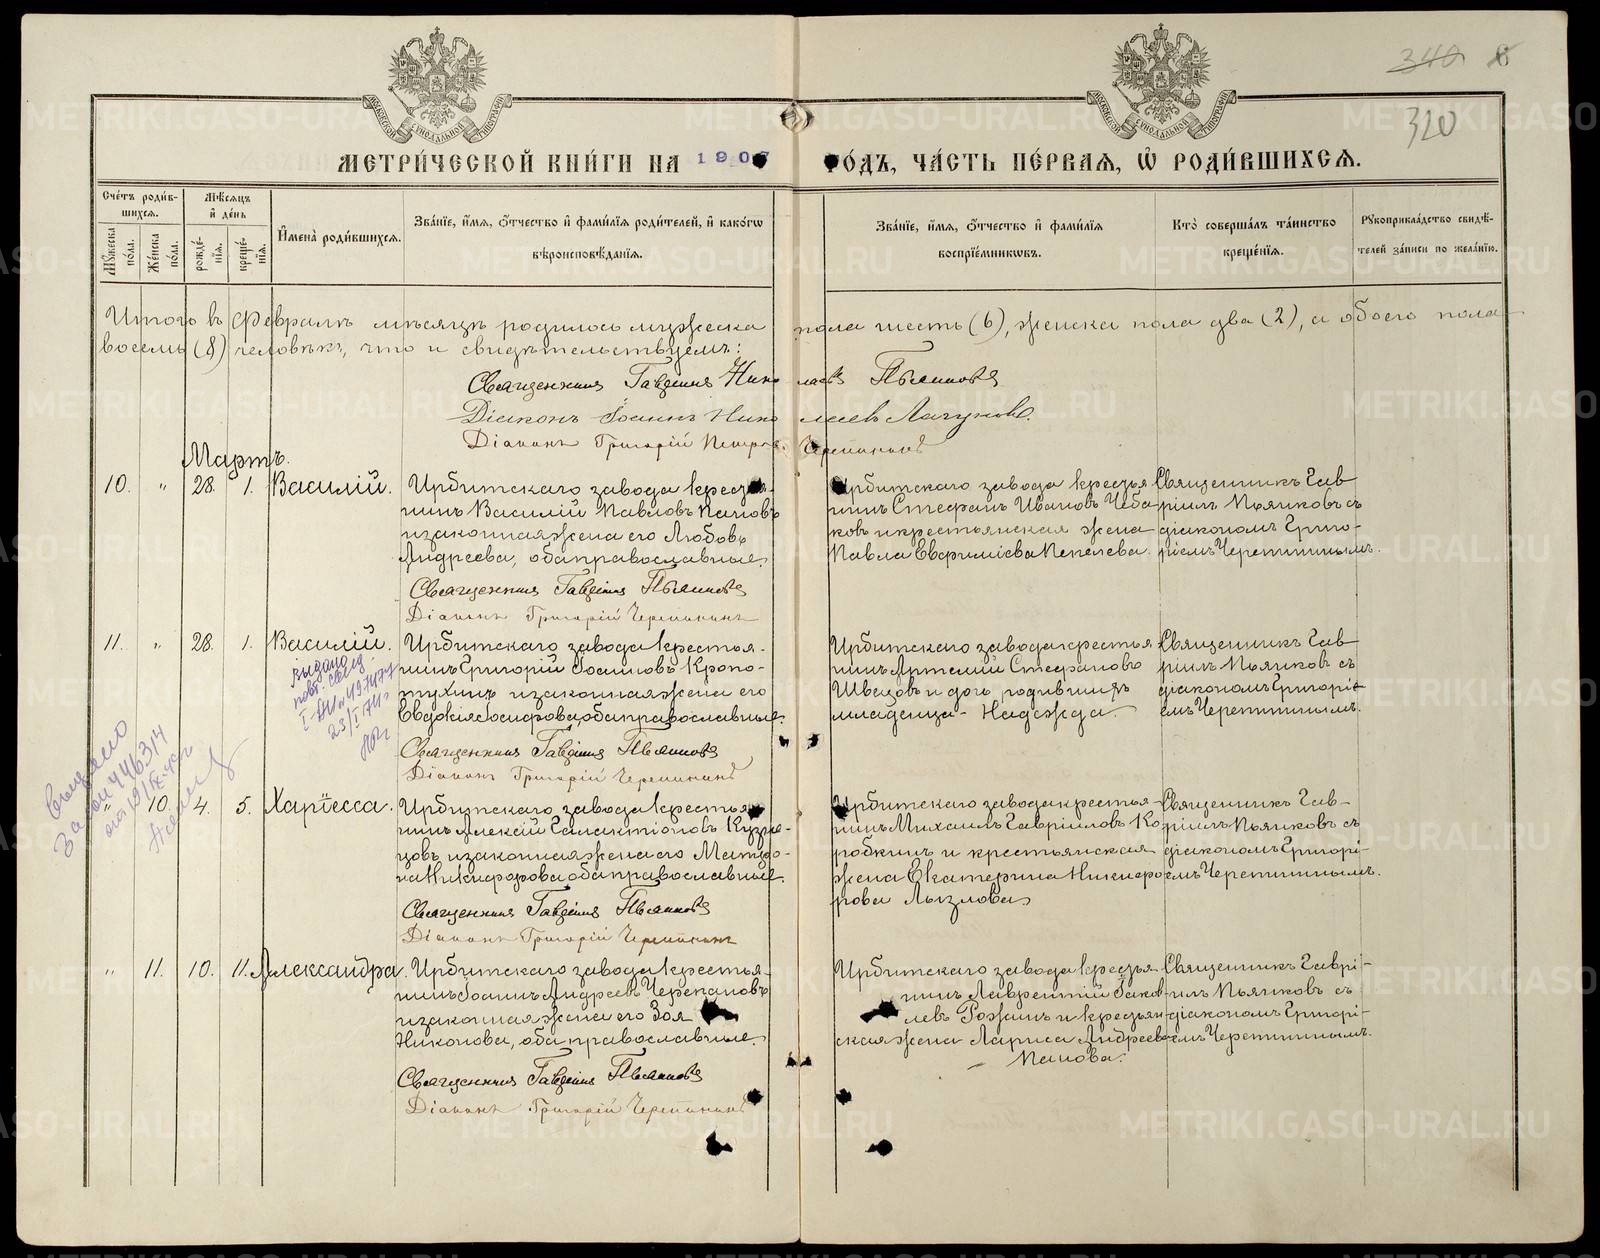 340
320
МЕТРИ́ЧЕСКОЙ КНИ́ГИ НА 1907 ГО́ДЪ, ЧА́СТЬ ПЕ́РВАЯ, Ѡ҆ РОДИ́ВШИХСЯ.
Сче́тъ роди́в-
шихся.
Мꙋ́жеска по́ла.
Же́нска по́ла.
Мѣ́сяцъ и҆ де́нь
рожде́-
нїя.
креще́-
нїя.
И҆мена̀ роди́вшихся.
Зва́нїе, и҆́мя, ѻ҆́тчество и҆ фами́лїя роди́телей, и҆ како́гѡ
вѣроисповѣ́данїя.
Зва́нїе, и҆́мя, ѻ҆́тчество и҆ фами́лїя
воспрїе́мниковъ.
Кто̀ соверша́лъ та́инство
креще́нїя.
Рꙋкоприкла́дство свидѣ́-
телей за́писи по жела́нїю.
Итого въ Февралѣ мѣсяцѣ родилось мужеска пола шесть (6), женска пола два (2), а обоего пола
восемь (8) человѣкъ, что и свидѣтельствуемъ:
Священникъ Гавріилъ Николаевъ Пьянковъ
Діаконъ Іоаннъ Николаевъ Лагуновъ.
Діаконъ Григорій Петровъ Черепанинъ
Мартъ.
10. " 28. 1. Василій.
Ирбитскаго завода крестья-
нинъ Василій Павловъ Пановъ
и законная жена его Любовь
Андреева, оба православные.
Священникъ Гавріилъ Пьянковъ
Діаконъ Григорій Черепанинъ
Ирбитскаго завода крестья
нинъ Стефанъ Ивановъ Чеба
ковъ и крестьянская жена
Павла Евфиміева Пепелева.
Священникъ Гав
ріилъ Пьянковъ съ
діакономъ Григо-
ріемъ
11. " 28. 1. Василій.
Ирбитскаго завода крестья-
нинъ Григорій Іосифовъ Кропо-
тухинъ и законная жена его
Евдокія Іосифова, оба православные.
Священникъ Гавріилъ Пьянковъ
Діаконъ Григорій Черепанинъ
Ирбитскаго завода крестья
нинъ Артемій Стефановъ
Швецовъ и дочь родившихъ
младенца - Надежда.
Священникъ Гав-
ріилъ Пьянковъ съ
діакономъ Григорі-
емъ
выдано
повт. свид.
" 10. 4. 5. Хариесса.
Ирбитскаго завода крестья
нинъ Алексій Галактіоновъ Кузне-
цовъ и законная жена его Матро-
на Никифорова, оба православные.
Священникъ Гавріилъ Пьянковъ
Діаконъ Григорій Черепанинъ
Ирбитскаго завода крестья-
нинъ Михаилъ Гавріиловъ Ко-
робкинъ и крестьянская
жена Екатерина Никифо
рова Лызлова
Священникъ Гав-
ріилъ Пьянковъ съ
діакономъ Григорі-
емъ
" 11. 10. 11. Александра.
Ирбитскаго завода крестья-
нинъ Іоаннъ Андреевъ Черепановъ
и законная жена его Зоя
Никонова, оба православные.
Священникъ Гавріилъ Пьянковъ
Діаконъ Григорій Черепанинъ
Ирбитскаго завода крестья
нинъ Лаврентій Іаков-
левъ Рожинъ и крестьян-
ская жена Лариса Андреева
Панова.
Священникъ Гаврі-
илъ Пьянковъ съ
діакономъ Григорі-
емъ
METRIKI.GASO-URAL.RU